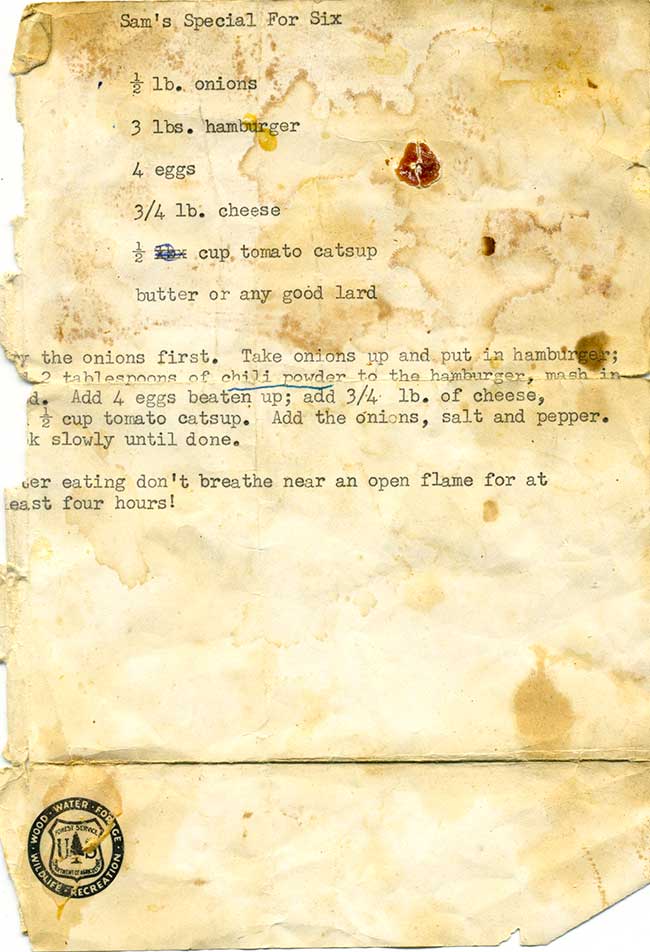 Sam's Special For Six
½ lb. onions
3 lbs. hamburger
4 eggs
3/4 lb. cheese
½ cup tomato catsup
butter or any good lard
y the onions first. Take onions up and put in hamburger;
2 tablespoons of chili powder to the hamburger, mash in
d. Add 4 eggs beaten up; add 3/4 lb. of cheese,
½ cup tomato catsup. Add the onions, salt and pepper.
ok slowly until done.
ter eating don't breathe near an open flame for at
east four hours!
WOOD · WATER · FORAGE
WILDLIFE · RECREATION
FOREST SERVICE
U S
DEPARTMENT OF AGRICULTURE